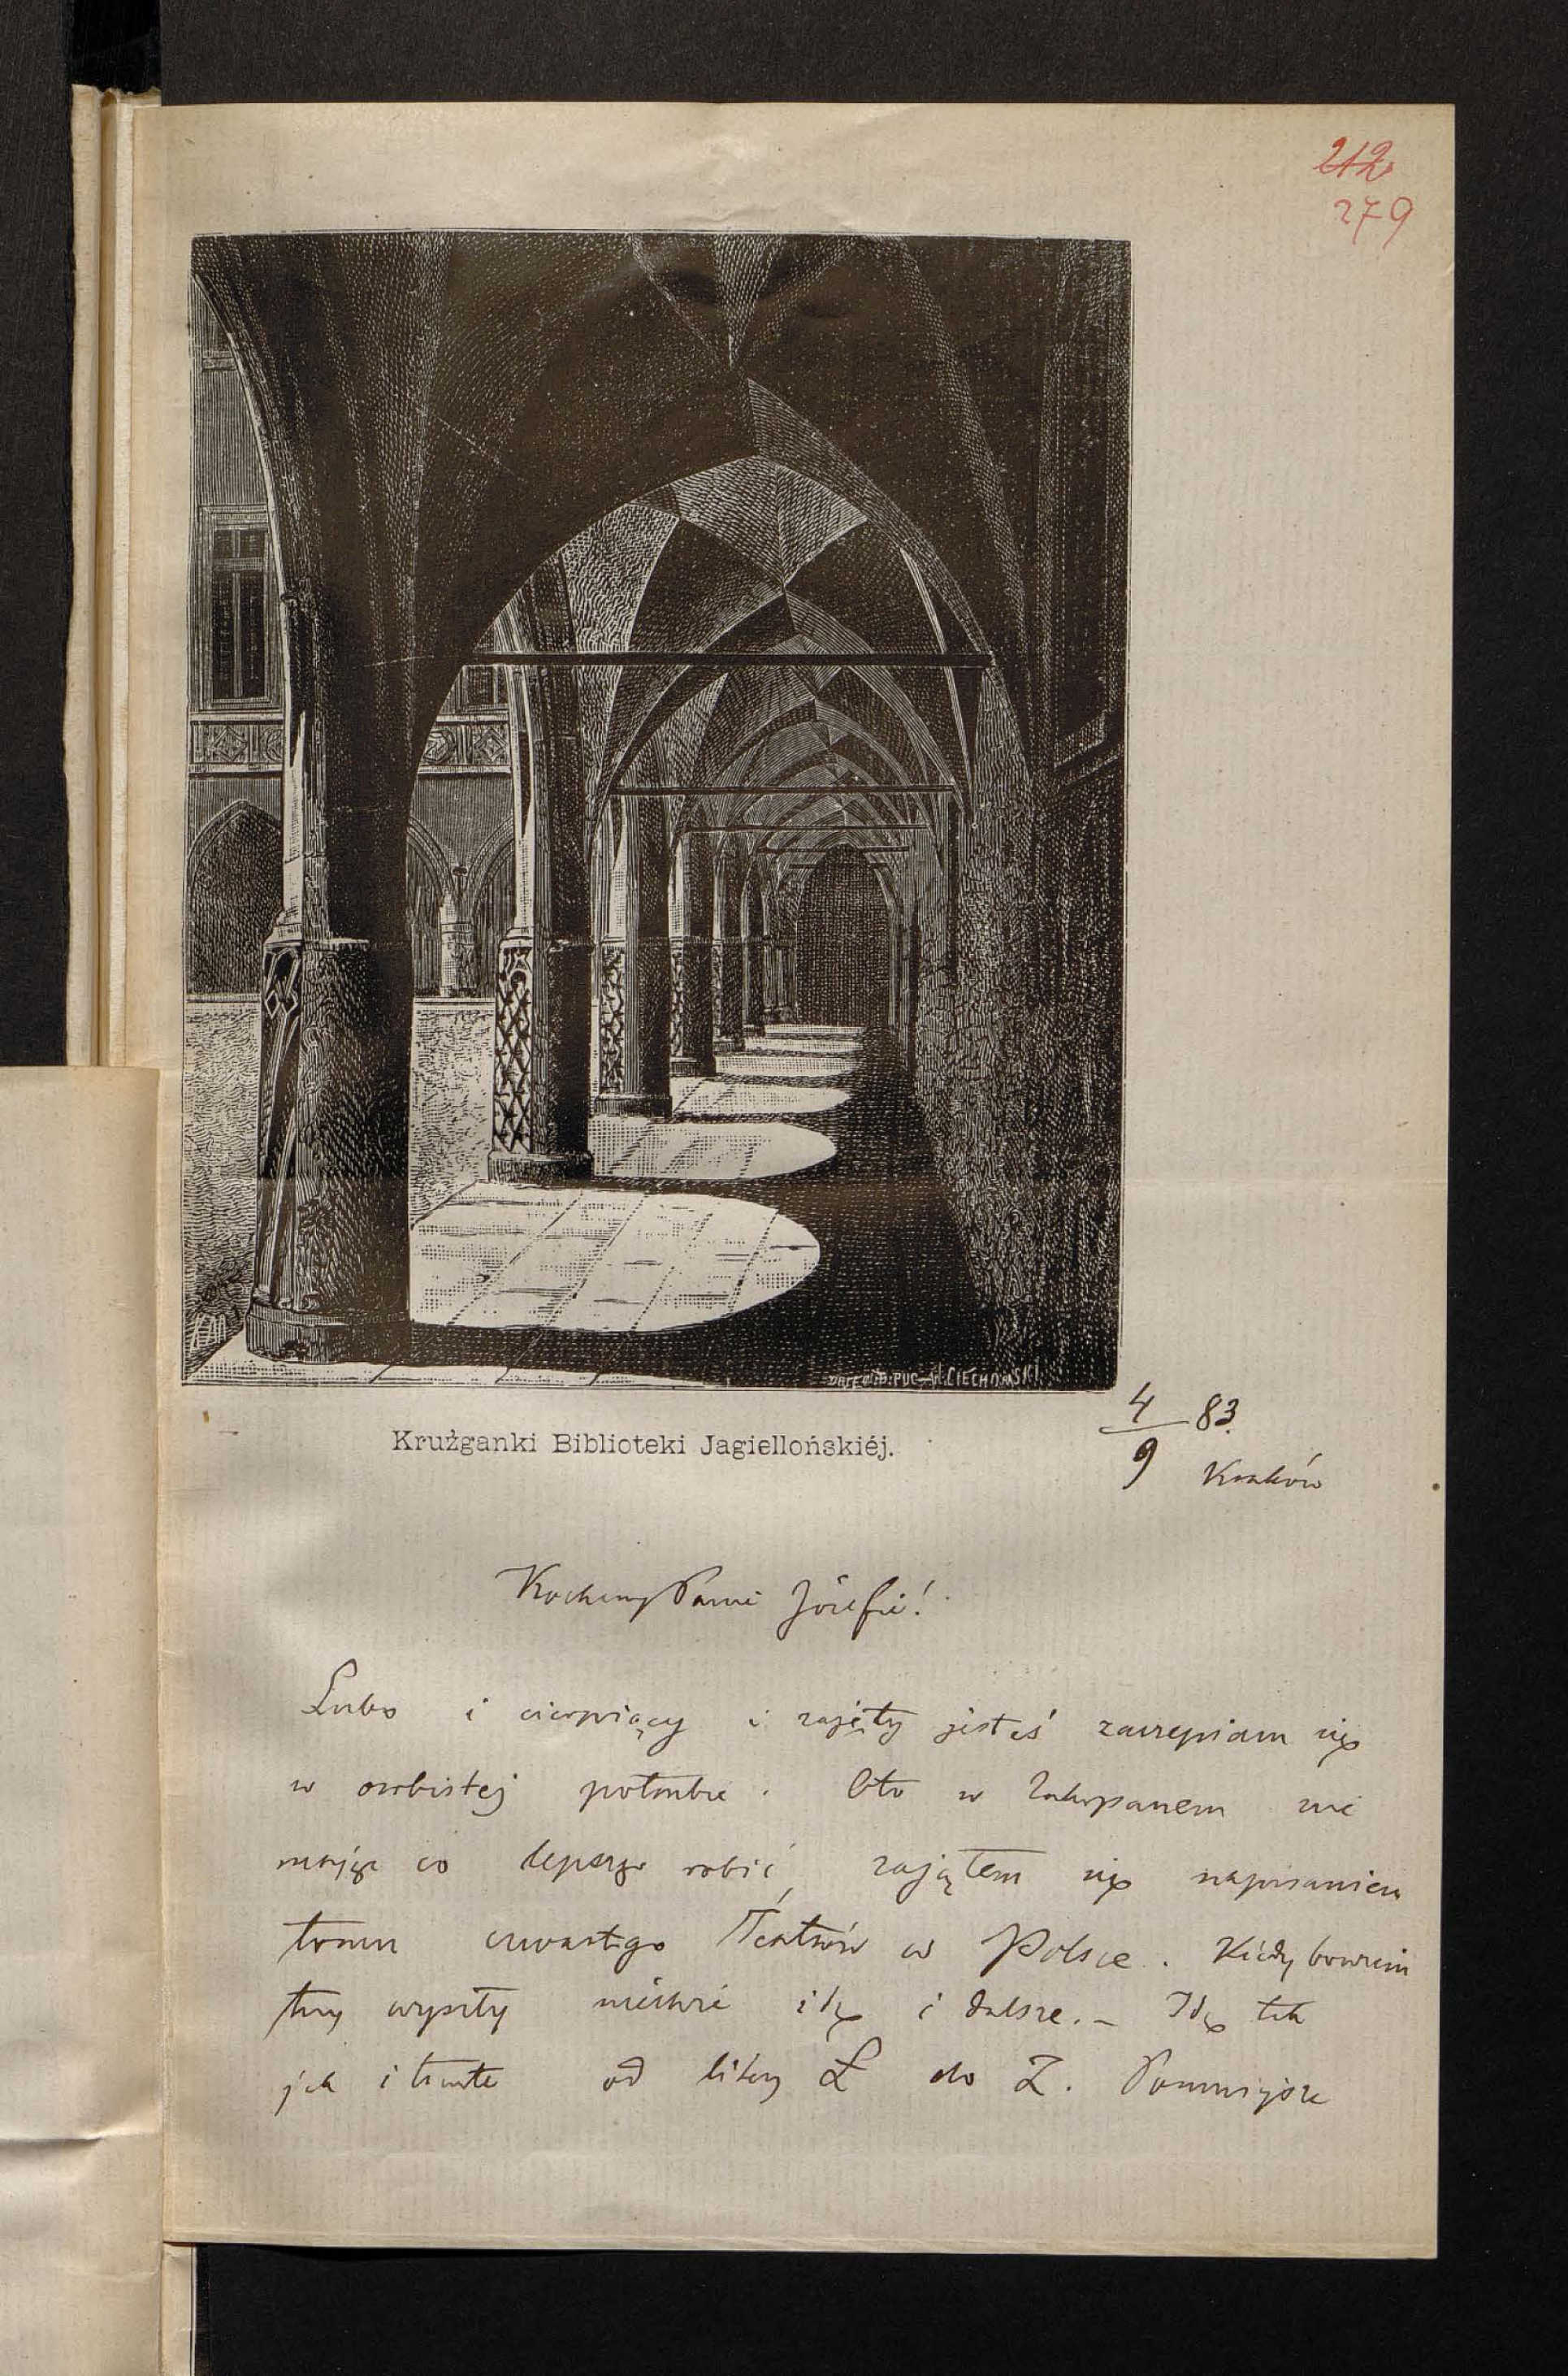 212
279
DRZEW. B. PUC. W. CIECHOMSKI.
Krużganki Biblioteki Jagiellońskiéj.
4/9 83.
Kraków
Kochany Panie Józefie!
Lubo i cierpiący i zajęty jesteś zaczepiam się
w osobistej potrzebie. Oto w Zakopanem nie
mając co lepszego robić, zająłem się napisaniem
tomu czwartego Teatrów w Polsce. Kiedy bowiem
trzy wyszły niechże idą i dalsze. – Idę tak
jak i tamte od litery L do Z. Pomniejsze